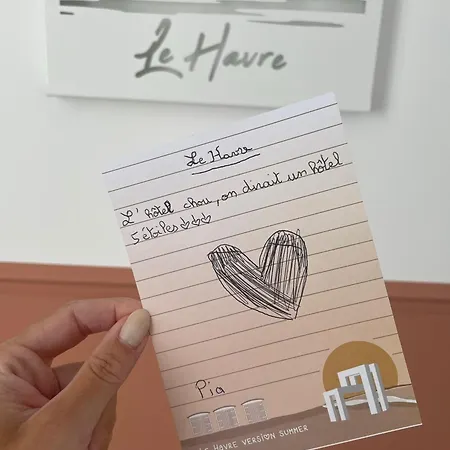 Le Havre
Le Havre
L'hôtel chou, on dirait un hôtel
5 étoiles
Pia
LE HAVRE VERSION SUMMER